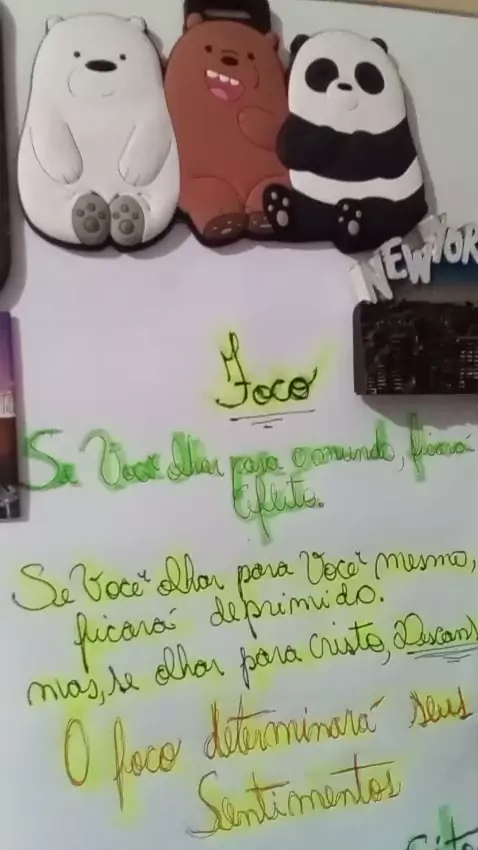 NEW YOR
Foco
Se Você olhar para o mundo, ficará
aflito.
Se Você olhar para Você mesmo,
ficará deprimido.
mas, se olhar para Cristo, Descans
O foco determinará seus
Sentimentos